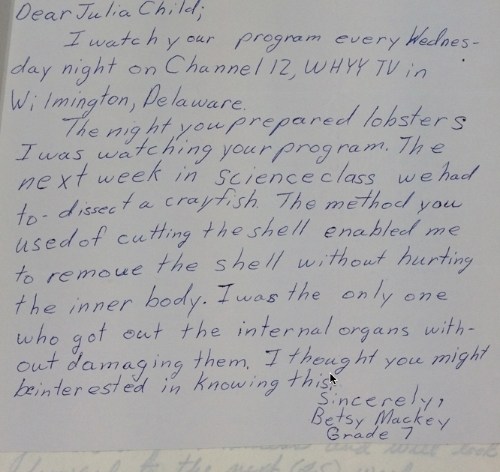 Dear Julia Child;
I watch your program every Wednes-
day night on Channel 12, WHYY TV in
Wilmington, Delaware.
The night you prepared lobsters
I was watching your program. The
next week in science class we had
to-dissect a crayfish. The method you
used of cutting the shell enabled me
to remove the shell without hurting
the inner body. I was the only one
who got out the internal organs with-
out damaging them. I thought you might
be interested in knowing this.
Sincerely,
Betsy Mackey
Grade 7